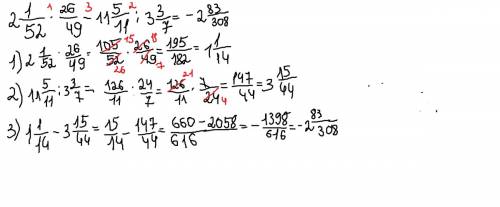 2 1/52 · 26/49 - 11 5/11 : 3 3/7 = -2 83/308
1) 2 1/52 · 26/49 = 105/52 · 26/49 = 195/182 = 1 1/14
2) 11 5/11 : 3 3/7 = 126/11 : 24/7 = 126/11 · 7/24 = 147/44 = 3 15/44
3) 1 1/14 - 3 15/44 = 15/14 - 147/44 = 660-2058/616 = -1398/616 = -2 83/308